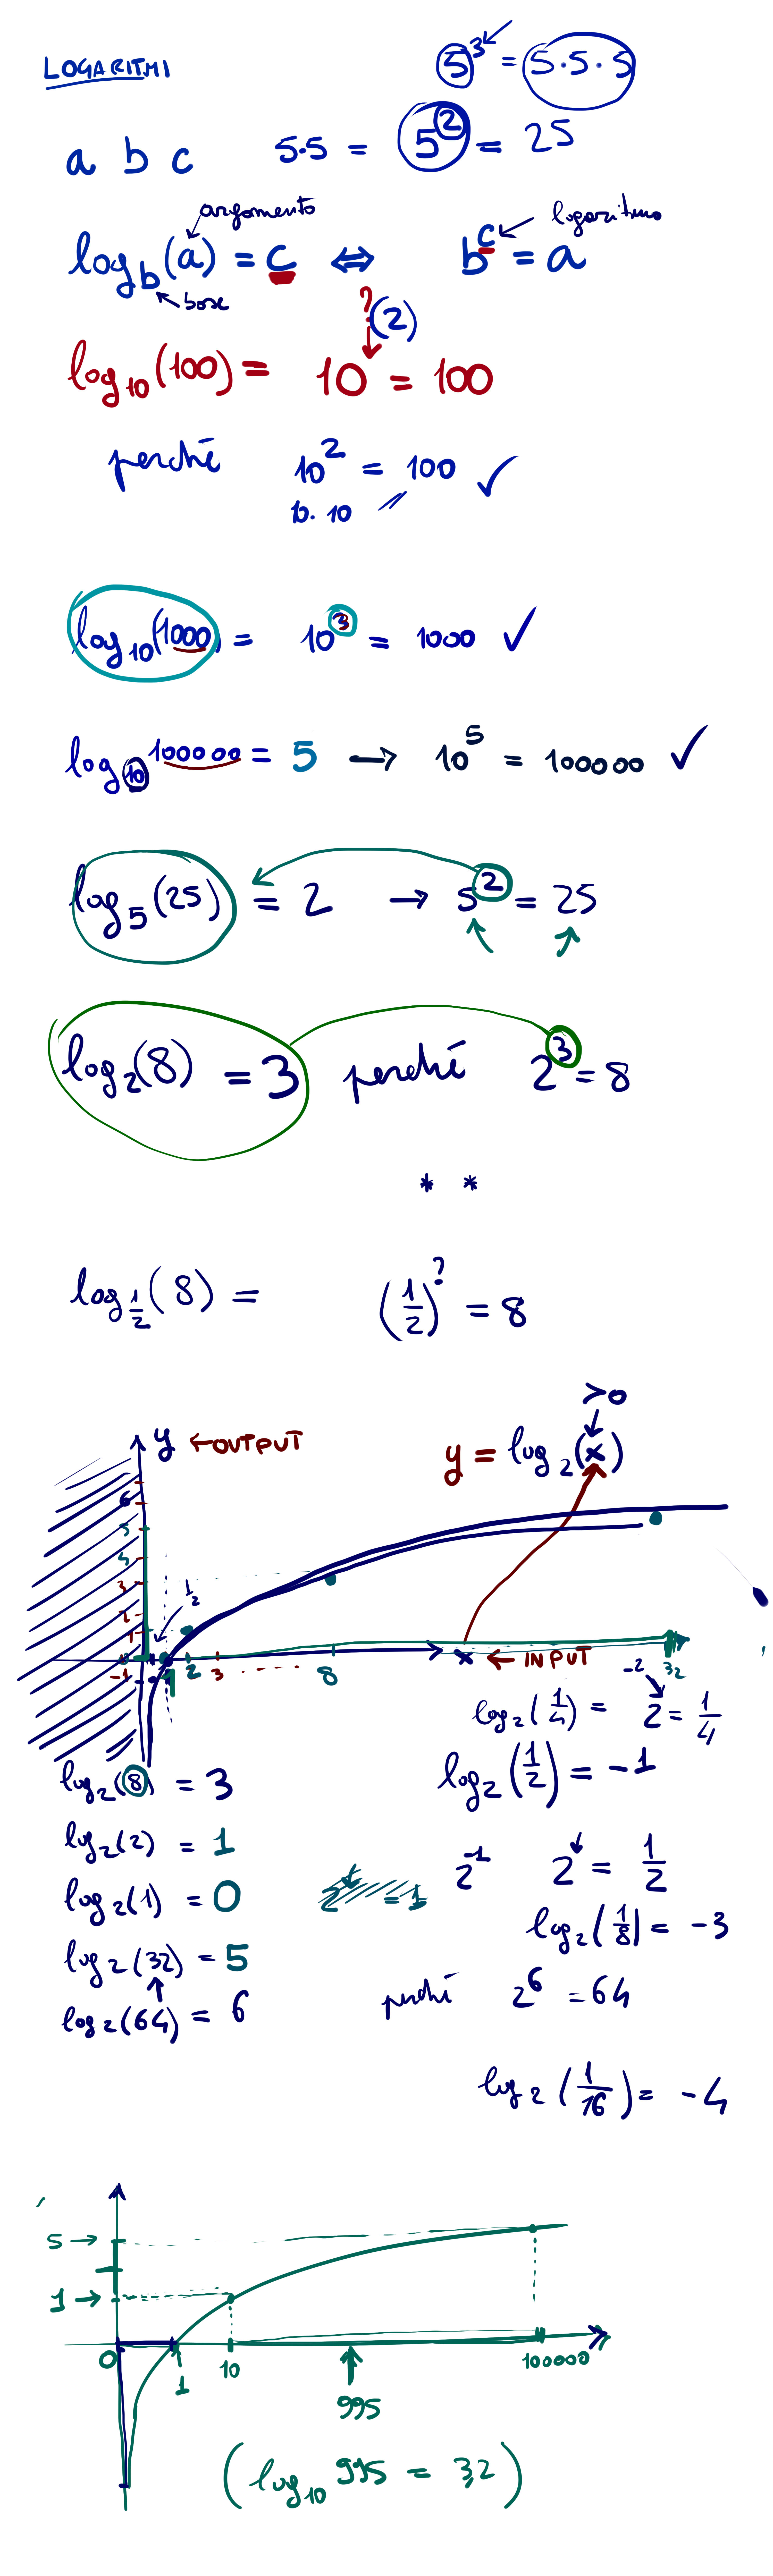 LOGARITMI
5³ = 5·5·5
a b c
5·5 = 5² = 25
argomento
logaritmo
log_b(a) = c ⇔ b^c = a
base
? (2)
log₁₀(100) = 10 = 100
perché 10² = 100 ✓
10. 10
log₁₀(1000) = 10³ = 1000 ✓
log₁₀ 100000 = 5 → 10⁵ = 100000 ✓
log₅(25) = 2 → 5² = 25
log₂(8) = 3 perché 2³ = 8
* *
log_{1/2}(8) = (1/2)^? = 8
>0
y ← OUTPUT
y = log₂(x)
6
5
4
3
2
1
0
-1
1/2
1 2 3 8 32
x ← INPUT
log₂(1/4) = 2^{-2} = 1/4
log₂(8) = 3
log₂(1/2) = -1
log₂(2) = 1
2^{-1} 2 = 1/2
log₂(1) = 0
2 = 1
log₂(1/8) = -3
log₂(32) = 5
log₂(64) = 6
perché 2⁶ = 64
log₂(1/16) = -4
5 →
1 →
0 1 10 100000
995
(log₁₀ 995 = 3,2)